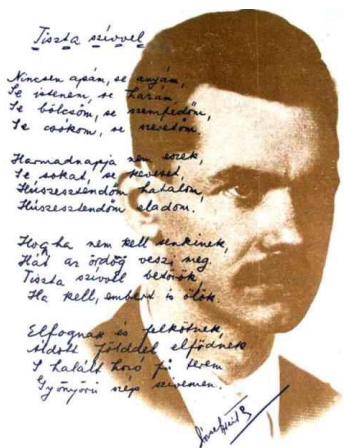 Tiszta szívvel
Nincsen apám, se anyám,
Se istenem, se hazám,
Se bölcsőm, se szemfedőm,
Se csókom, se szeretőm.
Harmadnapja nem eszek,
Se sokat, se keveset,
Húszesztendőm hatalom,
Húszesztendőm eladom.
Hogyha nem kell senkinek,
Hát az ördög veszi meg.
Tiszta szívvel betörök,
Ha kell, embert is ölök.
Elfognak és felkötnek,
Áldott földdel elfödnek
S halált hozó fű terem
Gyönyörű szép szívemen.